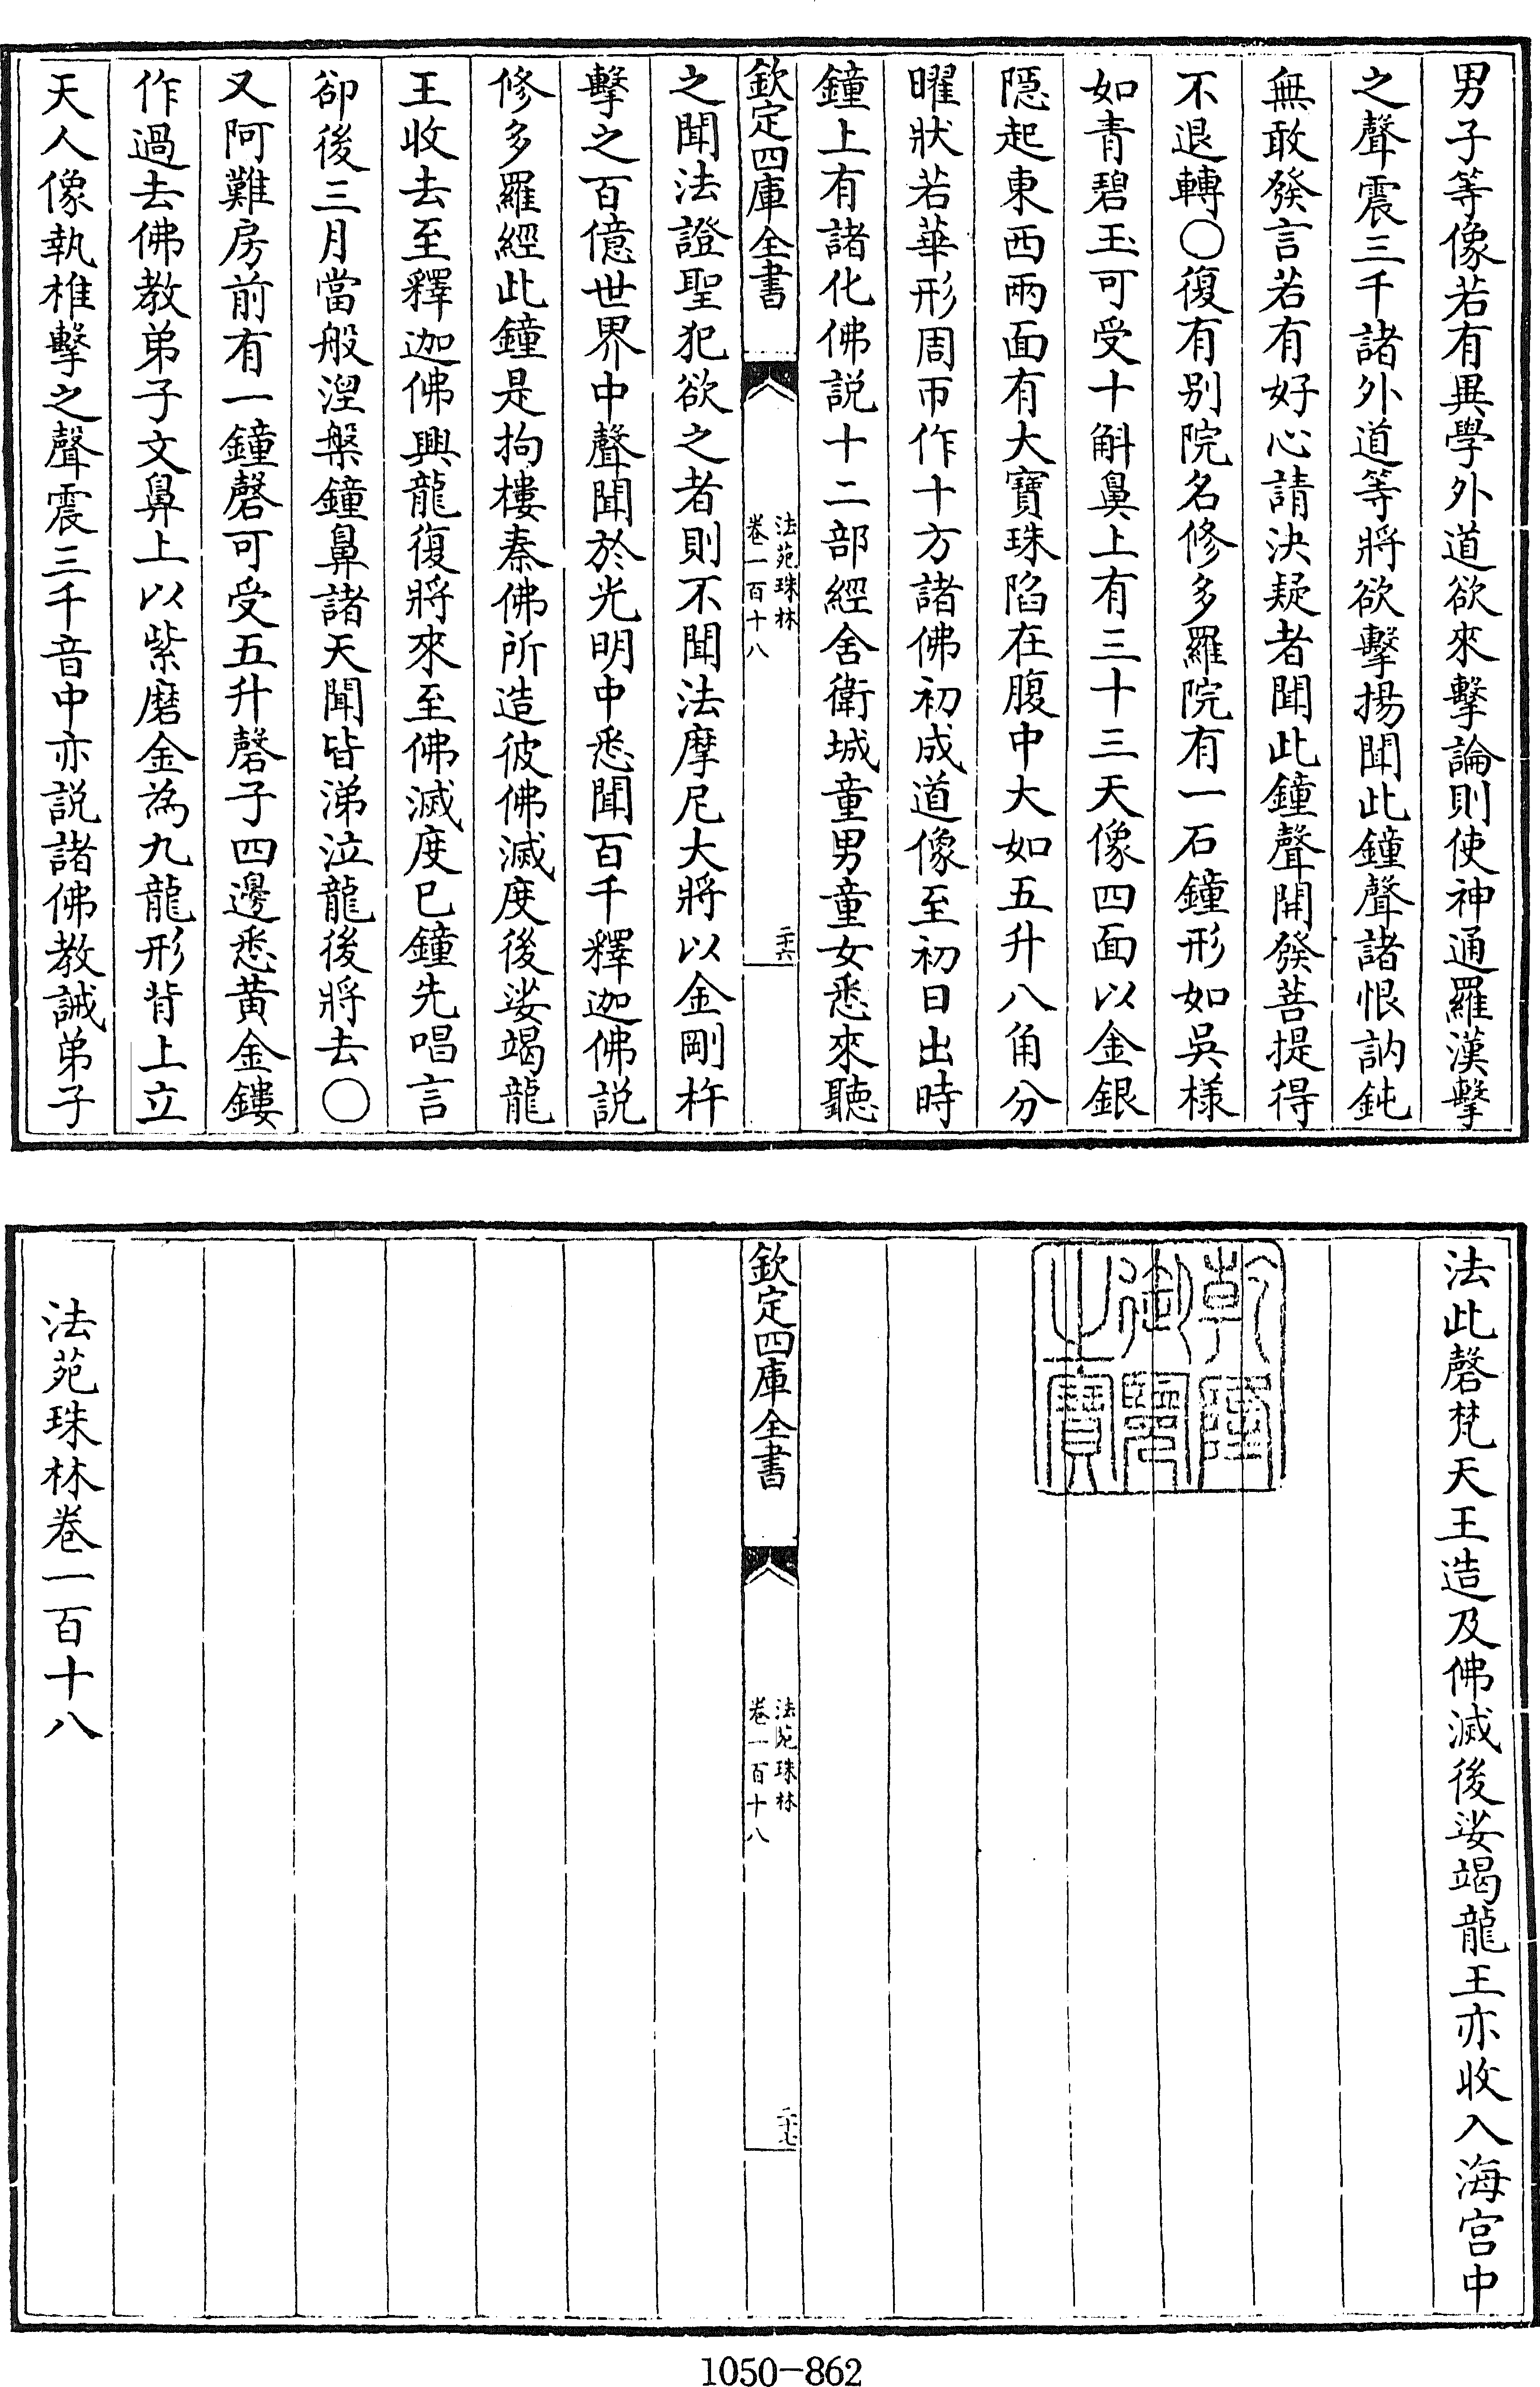 男子等像若有異學外道欲來擊論則使神通羅漢擊
之聲震三千諸外道等將欲擊揚聞此鐘聲諸恨訥鈍
無敢發言若有好心請決疑者聞此鐘聲開發菩提得
不退轉○復有别院名修多羅院有一石鐘形如吳様
如青碧玉可受十斛鼻上有三十三天像四面以金銀
隱起東西兩面有大寶珠陷在腹中大如五升八角分
曜狀若華形周帀作十方諸佛初成道像至初日出時
鐘上有諸化佛説十二部經舍衛城童男童女悉來聽
欽定四庫全書
法苑珠林
卷一百十八
二十六
之聞法證聖犯欲之者則不聞法摩尼大將以金剛杵
擊之百億世界中聲聞於光明中悉聞百千釋迦佛説
修多羅經此鐘是拘樓秦佛所造彼佛滅度後娑竭龍
王收去至釋迦佛興龍復將來至佛滅度已鐘先唱言
卻後三月當般涅槃鐘鼻諸天聞皆涕泣龍後將去○
又阿難房前有一鐘磬可受五升磬子四邊悉黄金鏤
作過去佛教弟子文鼻上以紫磨金為九龍形背上立
天人像執椎擊之聲震三千音中亦説諸佛教誡弟子
法此磬梵天王造及佛滅後娑竭龍王亦收入海宫中
乾隆御覽之寶
欽定四庫全書
法苑珠林
卷一百十八
二十七
法苑珠林卷一百十八
1050-862